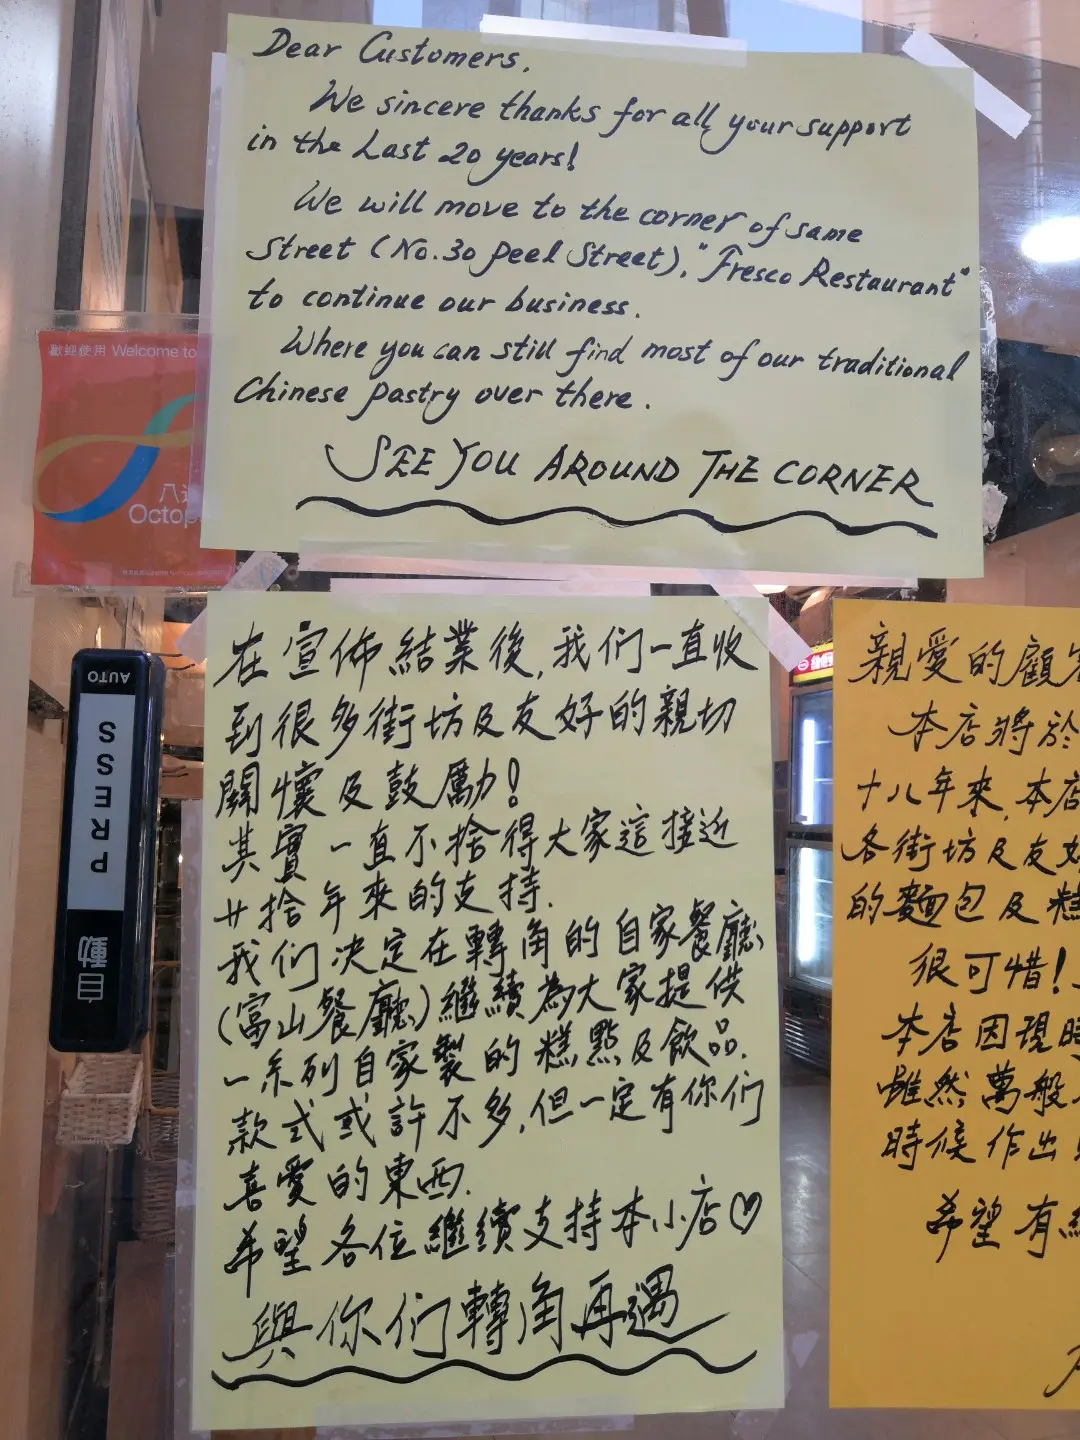 Dear Customers,
We sincere thanks for all your support
in the Last 20 years!
We will move to the corner of same
Street (No.30 Peel Street), "Fresco Restaurant"
to continue our business.
Where you can still find most of our traditional
Chinese Pastry over there.
SEE YOU AROUND THE CORNER
歡迎使用 Welcome to
八
Octop
AUTO
PRESS
自動
在宣佈結業後,我们一直收
到很多街坊及友好的親切
關懷及鼓勵!
其實一直不捨得大家這接近
廿拾年來的支持.
我们決定在轉角的自家餐廳
(富山餐廳)繼續為大家提供
一系列自家製的糕點及飲品.
款式或許不多,但一定有你们
喜愛的東西.
希望各位繼續支持本小店♡
與你们轉角再遇
親愛的顧客
本店將於
十八年來,本店
各街坊及友好
的麵包及糕
很可惜!
本店因現時
雖然萬般
時候作出
希望有